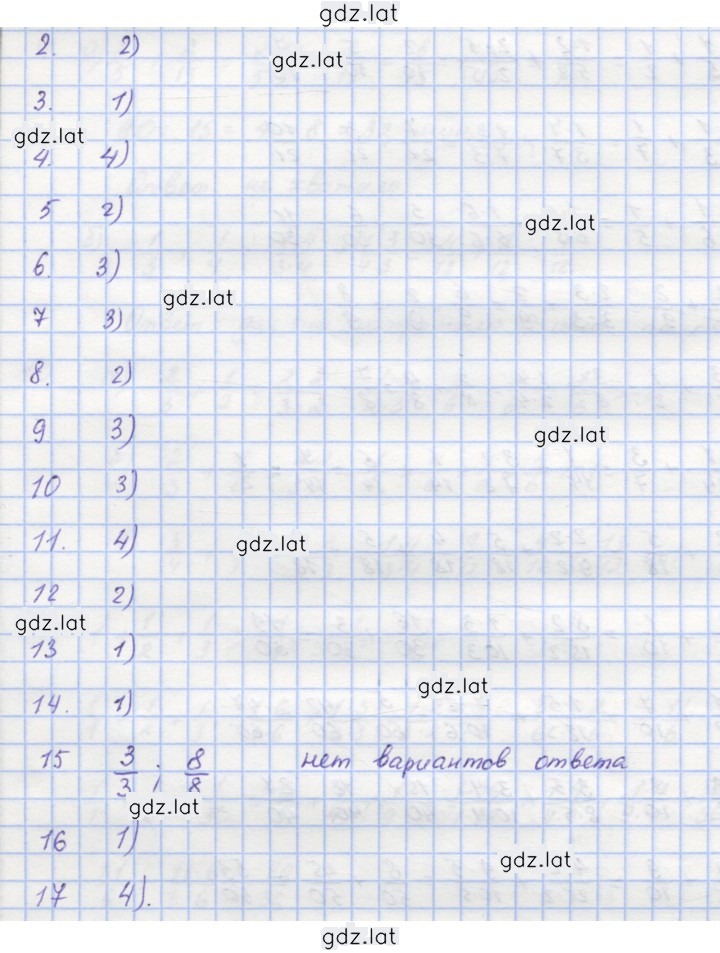 gdz.lat
2. 2)
gdz.lat
3. 1)
gdz.lat
4. 4)
5 2)
gdz.lat
6. 3)
gdz.lat
7 3)
8. 2)
9 3)
gdz.lat
10 3)
11. 4)
gdz.lat
12 2)
gdz.lat
13 1)
gdz.lat
14. 1)
15 3/3 ; 8/8 нет вариантов ответа
gdz.lat
16 1)
gdz.lat
17 4).
gdz.lat